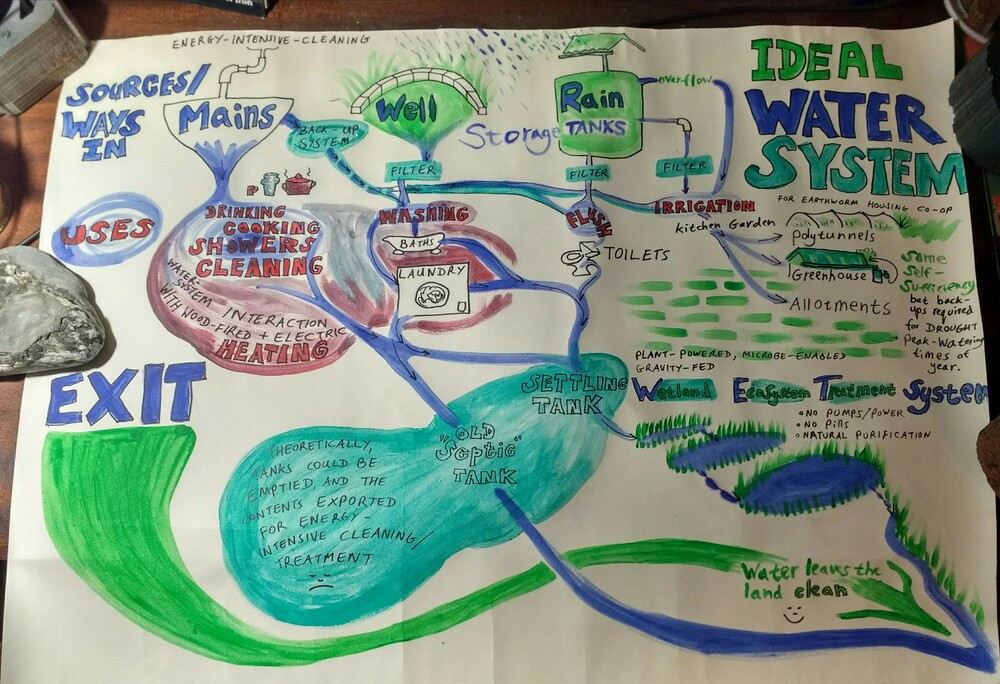 ENERGY-INTENSIVE-CLEANING
SOURCES/
WAYS
IN
Mains
BACK-UP
SYSTEM
Well
Storage
Rain
TANKS
overflow
FILTER
FILTER
FILTER
IDEAL
WATER
SYSTEM
FOR EARTHWORM HOUSING CO-OP
USES
DRINKING
COOKING
SHOWERS
CLEANING
WATER-
SYSTEM
INTERACTION
WITH WOOD-FIRED + ELECTRIC
HEATING
WASHING
BATHS
LAUNDRY
FLUSH
TOILETS
IRRIGATION
Kitchen Garden
Polytunnels
Greenhouse
Allotments
Some
Self-
Sufficiency
but back-
ups required
for DROUGHT
Peak-Watering
times of
year.
PLANT-POWERED, MICROBE-ENABLED
GRAVITY-FED
Wetland EcoSystem Treatment System
• NO PUMPS/POWER
• NO Pills
• NATURAL PURIFICATION
EXIT
SETTLING
TANK
"OLD
Septic"
TANK
THEORETICALLY,
TANKS COULD BE
EMPTIED, AND THE
CONTENTS EXPORTED
FOR ENERGY-
INTENSIVE CLEANING/
TREATMENT
Water leaves the
land clean